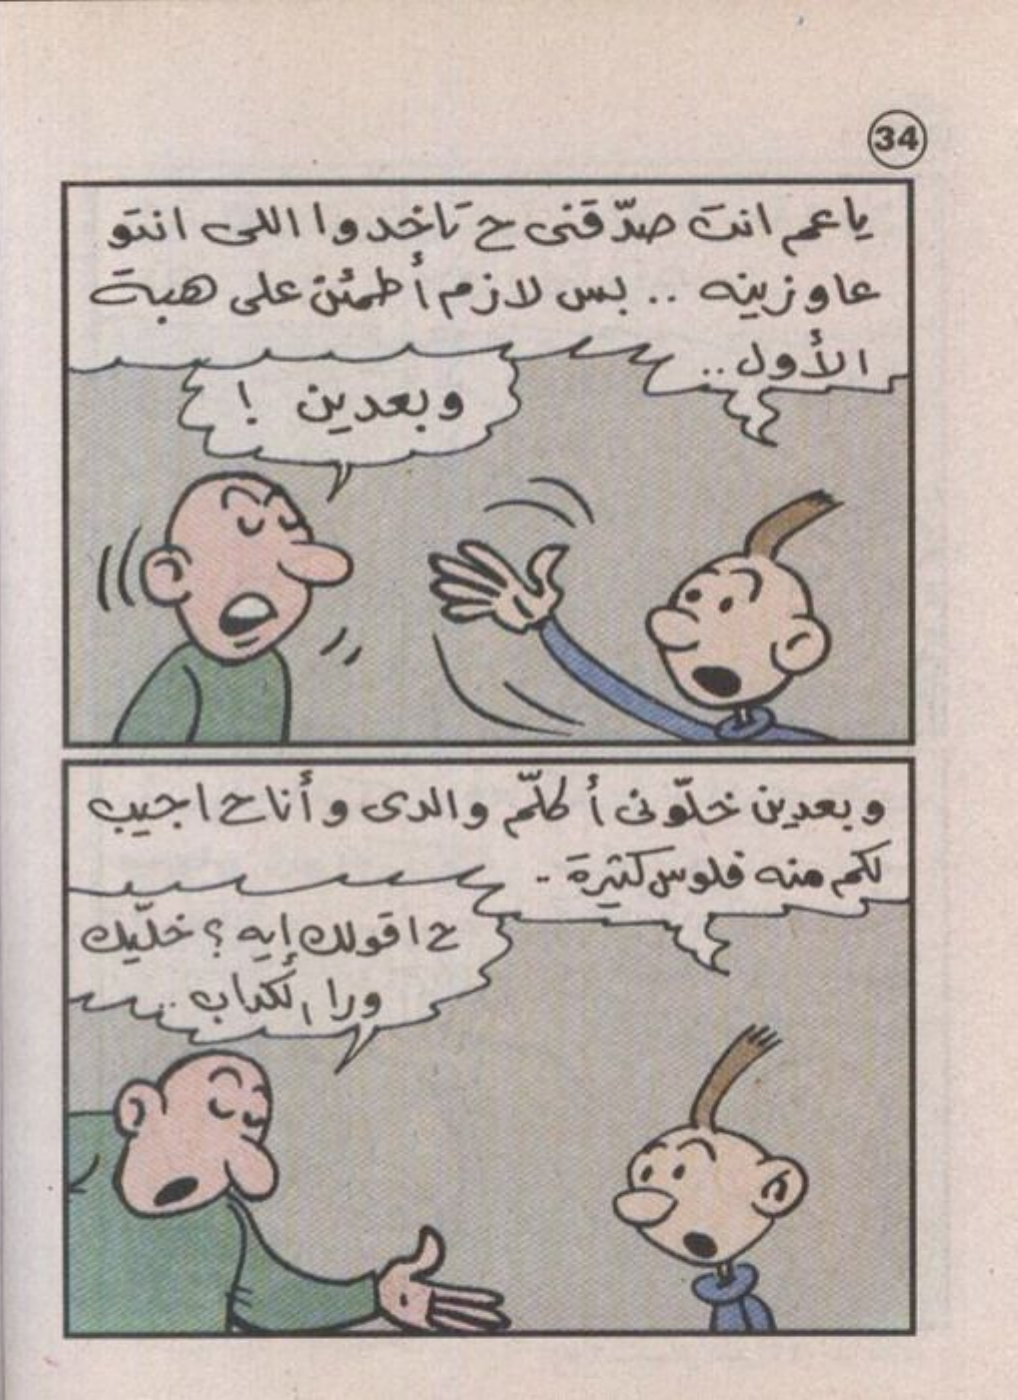 34
يا عم انت صدّقنى ح تاخدوا اللى انتو
عاوزينه .. بس لازم أطمئن على هبة
الأول ..
وبعدين !
وبعدين خلّونى أكلّم والدى وأنا ح اجيب
لكم منه فلوس كثيرة -
ح اقولك إيه ؟ خلّيك
ورا الكداب ..